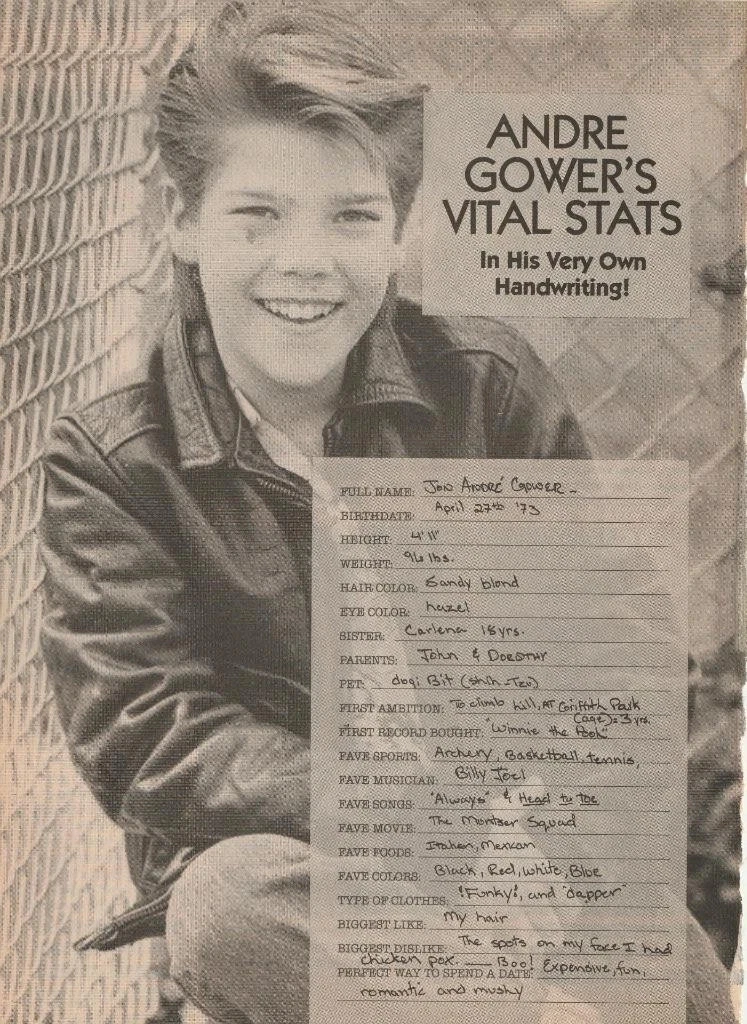 ANDRE
GOWER'S
VITAL STATS
In His Very Own
Handwriting!
FULL NAME: Jon André Gower -
BIRTHDATE: April 27th '73
HEIGHT: 4' 11"
WEIGHT: 96 lbs.
HAIR COLOR: Sandy blond
EYE COLOR: hazel
SISTER: Carlena 18yrs.
PARENTS: John & Dorothy
PET: dog: Bit (Shih-Tzu)
FIRST AMBITION: To climb hill, AT Griffith Park
(age): 3 yrs.
FIRST RECORD BOUGHT: "Winnie the Pooh"
FAVE SPORTS: Archery, Basketball, tennis,
FAVE MUSICIAN: Billy Joel
FAVE SONGS: "Always" & Head to toe
FAVE MOVIE: The Monster Squad
FAVE FOODS: Italian, Mexican
FAVE COLORS: Black, Red, white, Blue
TYPE OF CLOTHES: "Funky", and "dapper"
BIGGEST LIKE: My hair
BIGGEST DISLIKE: The spots on my face I had
chicken pox. — Boo!
PERFECT WAY TO SPEND A DATE: Expensive, fun,
romantic and mushy